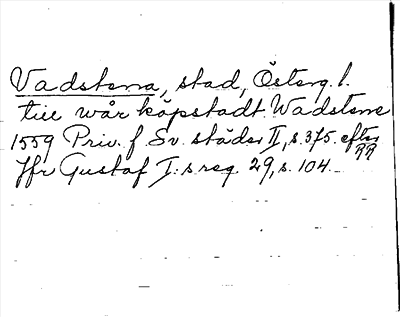 Vadstena, stad, Österg. l.
till wår köpstadt Wadstena
1559 Priv. f. Sv. städer II, s. 375. efter
RR
Jfr Gustaf I:s reg. 29, s. 104.